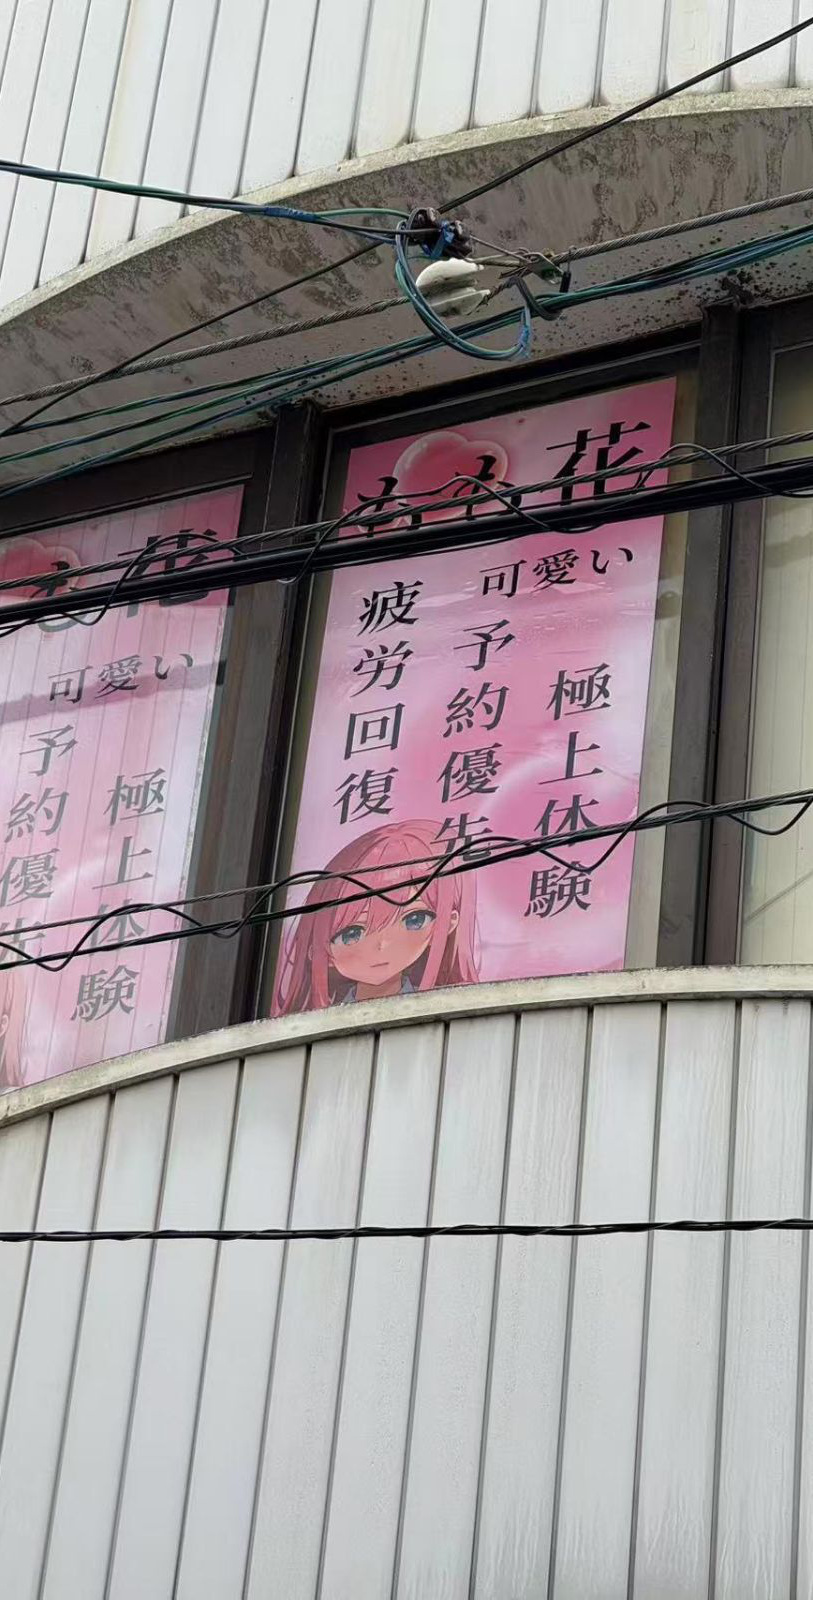 もも花
可愛い
極上体験
予約優先
疲労回復
も花
可愛い
極上体験
予約優先